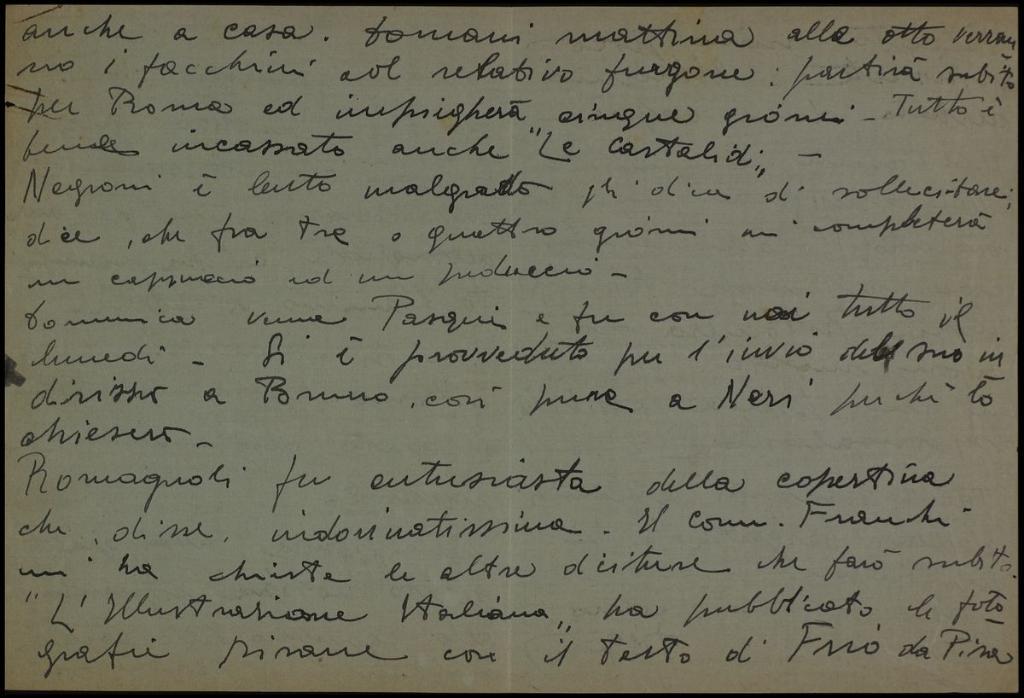 anche a casa. Domani mattina alle otto verran
no i facchini col relativo furgone: partirà subito
per Roma ed impiegherà cinque giorni - Tutto è
bene incassato anche "Le Castalidi" -
Negroni è lento malgrado gli dica di sollecitare;
dice, che fra tre o quattro giorni mi completerà
un cappuccio ed un peduccio -
Domenica venne Pasqui e fu con noi tutto il
lunedì - Si è provveduto per l'invio del suo in
dirizzo a Bruno, così pure a Neri perchè lo
chiesero -
Romagnoli fu entusiasta della copertina
che, disse, indovinatissima. Il Comm. Franchi
mi ha chieste le altre diciture che farò subito.
"L'Illustrazione Italiana" ha pubblicato le foto
grafie pisane con il testo di da Pisa